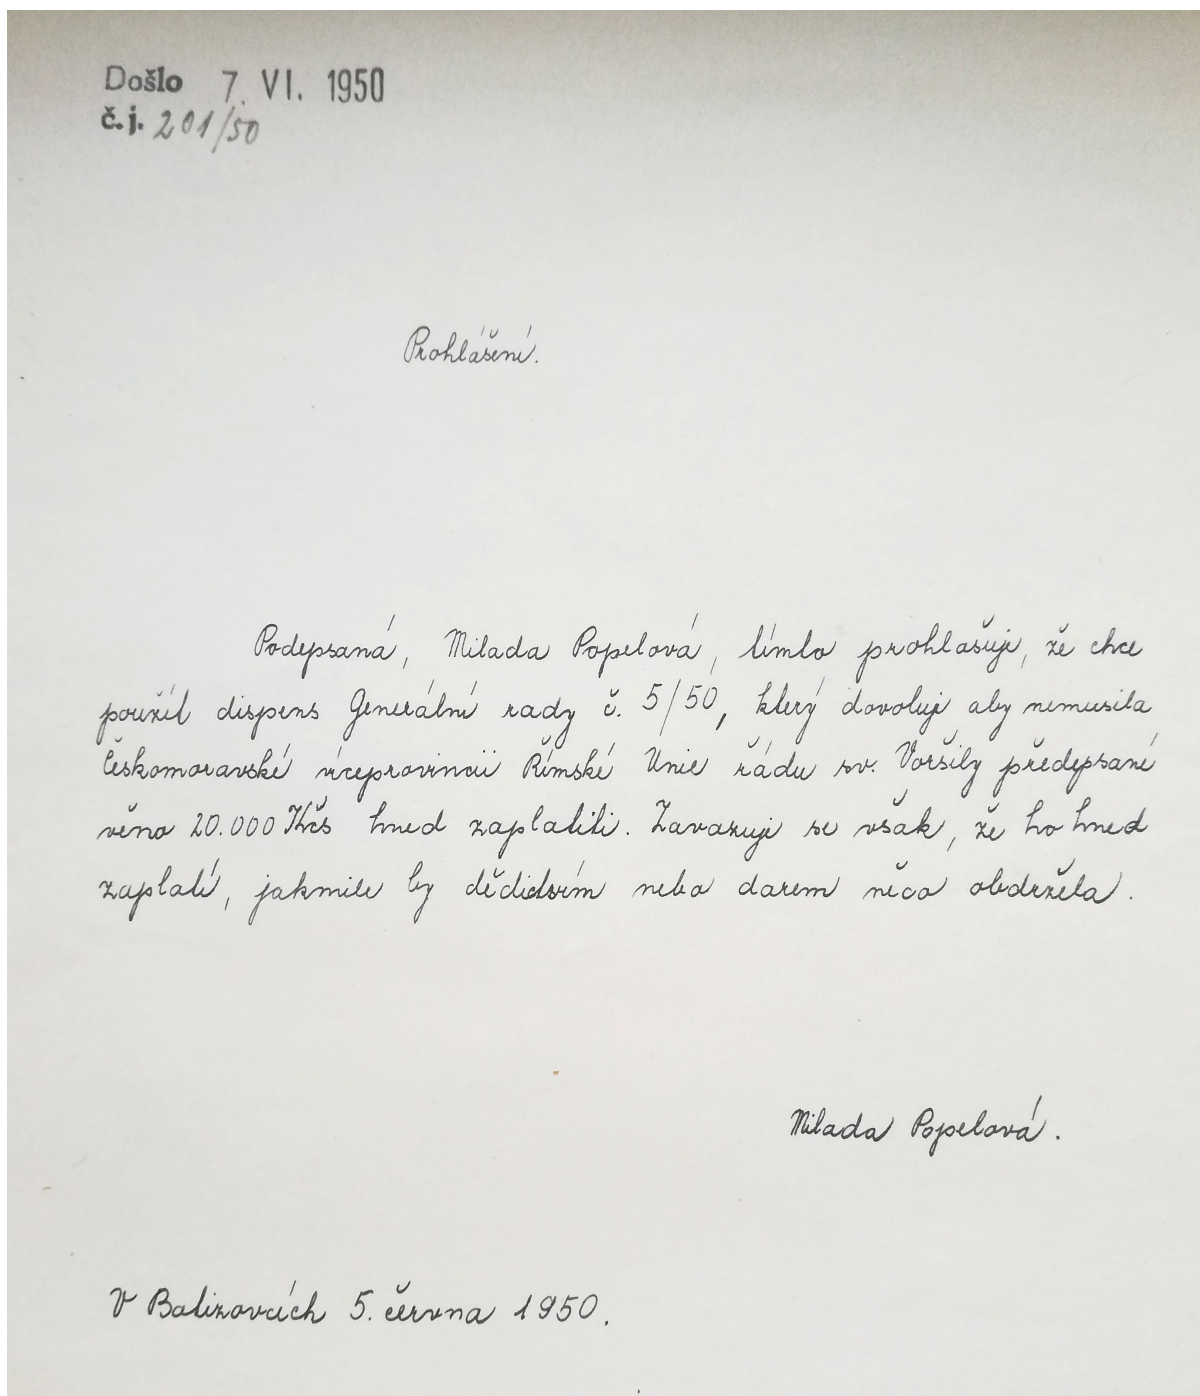 Došlo 7. VI. 1950
č. j. 201/50
Prohlášení.
Podepsaná, Milada Popelová, tímto prohlašuje, že chce
použít dispens Generální rady č. 5/50, který dovoluje aby nemusila
Českomoravské viceprovincii Římské Unie řádu sv. Voršily předepsané
věno 20.000 Kčs hned zaplatiti. Zavazuje se však, že ho hned
zaplatí, jakmile by dědictvím nebo darem něco obdržela.
Milada Popelová.
V Batizovcích 5. června 1950.